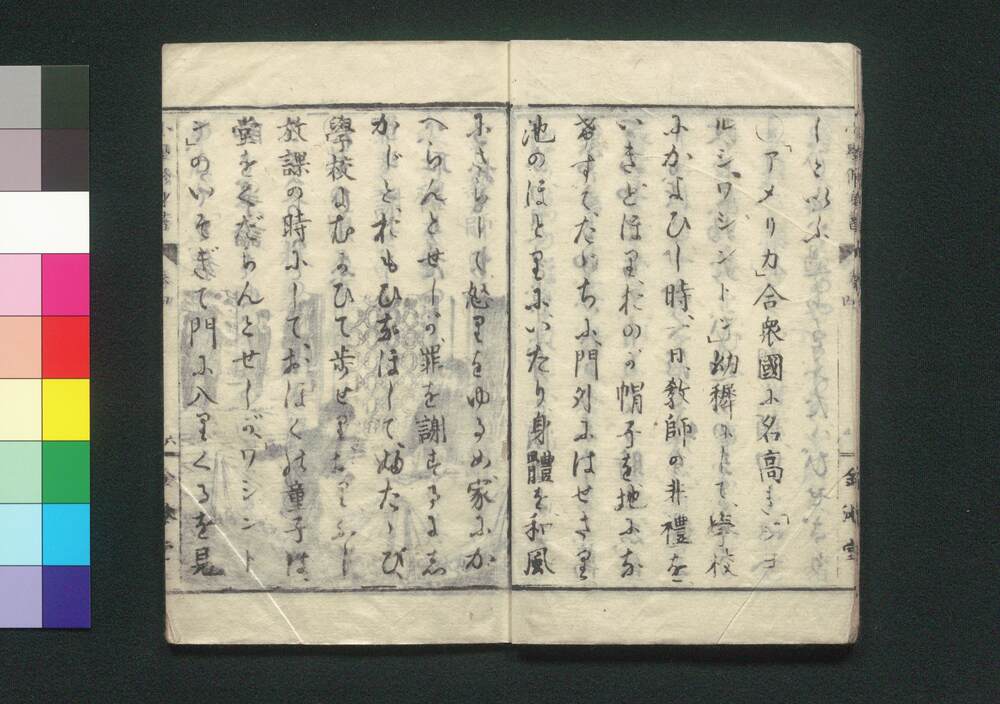 しといふ
「アメリカ」合衆國に名高き「ジヨ
ルジ、ワシントン」幼穉にして、學校
にかよひし時、一日、教師の非禮を
いきどほり、おのが帽子を地にな
げすて、たゞちに、門外にはせさり
池のほとりにいたり身體を和風
にさらして怒りをゆるめ家にか
へらんとせしが、罪を謝するにし
かじと、おもひなほして、ふたゝび、
學校にむかひて歩せり
放課の時にして、おほくの童子は、
堂をくだらんとせしが、ワシント
ン」のいそぎて門に入りくるを見